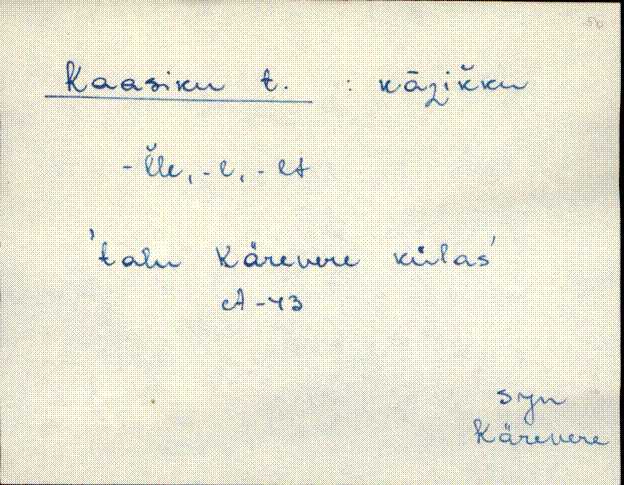 Kaasiku t. : kāzik̆ku
-l̆le, -l, -lt
'talu Kärevere külas'
A-43
SJn
Kärevere